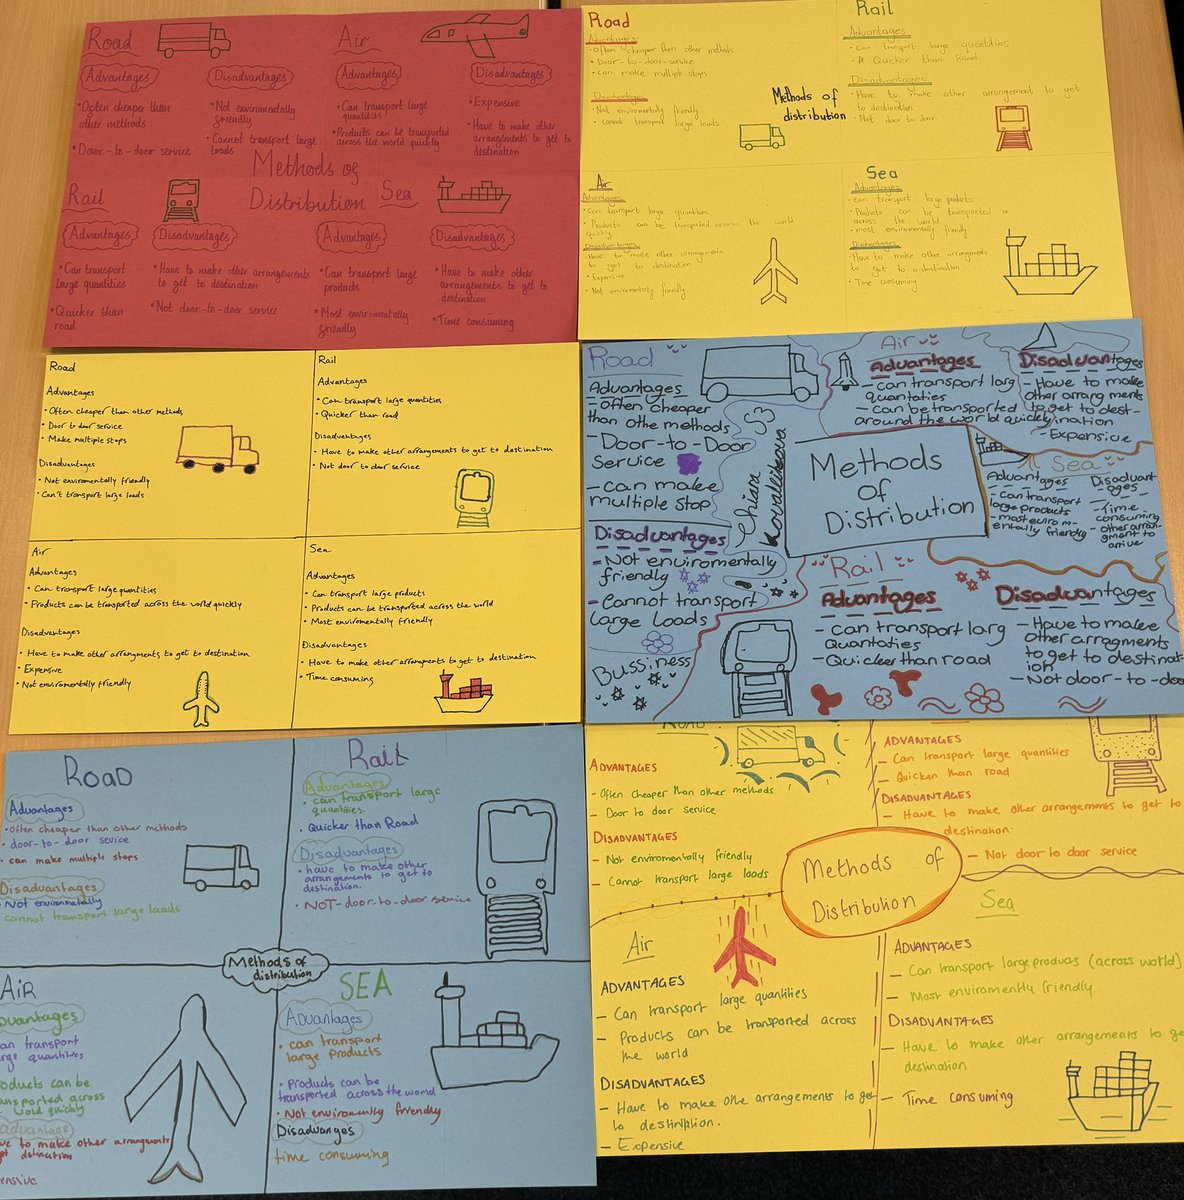 Road
Advantages
•Often cheaper than
other methods
•Door-to-door service
Disadvantages
•Not enviromentally
friendly
•Cannot transport large
loads
Air
Advantages
•Can transport large
quantities
•Products can be transported
across the world quickly
Disadvantages
•Expensive
•Have to make other
arrangements to get to
destination
Methods of
Distribution
Rail
Advantages
•Can transport
large quantities
•Quicker than
road
Disadvantages
•Have to make other arrangements
to get to destination
•Not door-to-door service
Sea
Advantages
•Can transport large
products
•Most enviromentally
friendly
Disadvantages
•Have to make other
arrangements to get to
destination
•Time consuming
Road
Advantages
•Often cheaper than other methods
•Door-to-door-service
•Can make multiple stops
Disadvantages
•Not enviromentally friendly
•Cannot transport large loads
Methods of
distribution
Rail
Advantages
•Can transport large quantities
•A Quicker than Road
Disadvantages
•Have to make other arrangement to get
to destination
•Not door to door.
Air
Advantages
•Can transport large quantities
•Products can be transported across the world
quickly
Disadvantages
•Have to make other arrangements
to get to destination
•Expensive
•Not enviromentally friendly
Sea
Advantages
•Can transport large products
•Products can be transported
across the world
•most enviromentally friendly
•Have to make other arrangements
to get to a destination
•Time consuming
Road
Advantages
•Often cheaper than other methods
•Door to door service
•Make multiple stops
Disadvantages
•Not enviromentally friendly
•Can't transport large loads
Rail
Advantages
•Can transport large quantities
•Quicker than road
Disadvantages
•Have to make other arrangements to get to destination
•Not door to door service
Air
Advantages
•Can transport large quantities
•Products can be transported across the world quickly
Disadvantages
•Have to make other arrangments to get to destination
•Expensive
•Not enviromentally friendly
Sea
Advantages
•Can transport large products
•Products can be transported across the world
•Most enviromentally friendly
Disadvantages
•Have to make other arrangments to get to destination
•Time consuming
Road
Advantages
-Often cheaper
than othe methods
-Door-to-Door
service
-can make
multiple stop
Disadvantages
-Not enviromentally
friendly
-Cannot transport
large loads
Bussiness
Chiara S3
Air
Advantages
-can transport larg
quantaties
-can be transported
around the world quickly
Disadvantages
-Have to make
other arrangments
to get to dest-
ination
-Expensive
Methods
of
Distribution
Sea
Advantages
-can transport
large products
-most enviro m-
entally friendly
Disadvant
ages
-Time
consuming
-other arran-
gment to
arrive
Rail
Advantages
-can transport larg
Quantaties
-Quicker than road
Disadvantages
-Have to make
Other arragments
to get to destinat-
ion
-Not door-to-doo
ROAD
Advantages
•Often cheaper than other methods
•door-to-door sevice
•can make multiple stops
Disadvantages
•Not environmentally
cannot transport large loads
Rail
Advantages
•can transport large
quantities.
•Quicker than Road
Disadvantages
•have to make other
arrangements to get to
destination.
•NOT-door-to-door service
Methods of
distribution
AIR
dvantages
an transport
arge quantities
roducts can be
ansported across
wold quickly
advantage
ve to make other arrangements
ensive
SEA
Advantages
•can transport
large Products
•Products can be
transported across the world
•Not environently friendly
Disadvanges
time consuming
ROAD
ADVANTAGES
-Often cheaper than other methods
-Door to door service
DISADVANTAGES
-Not enviromentally friendly
-Cannot transport large loads
ADVANTAGES
-Can transport large quantities
-Quicken than road
DISADVANTAGES
-Have to make other arrangements to get to
destination.
-Not door to door service
Methods of
Distribution
Air
ADVANTAGES
-Can transport large quantities
-Products can be transported across
the world
DISADVANTAGES
-Have to make othe arrangements to get
to destination.
-Expensive
Sea
ADVANTAGES
-Can transport large producs (across world)
-Most enviromently friendly
DISADVANTAGES
-Have to make other arrangements to ge
destination
-Time consuming